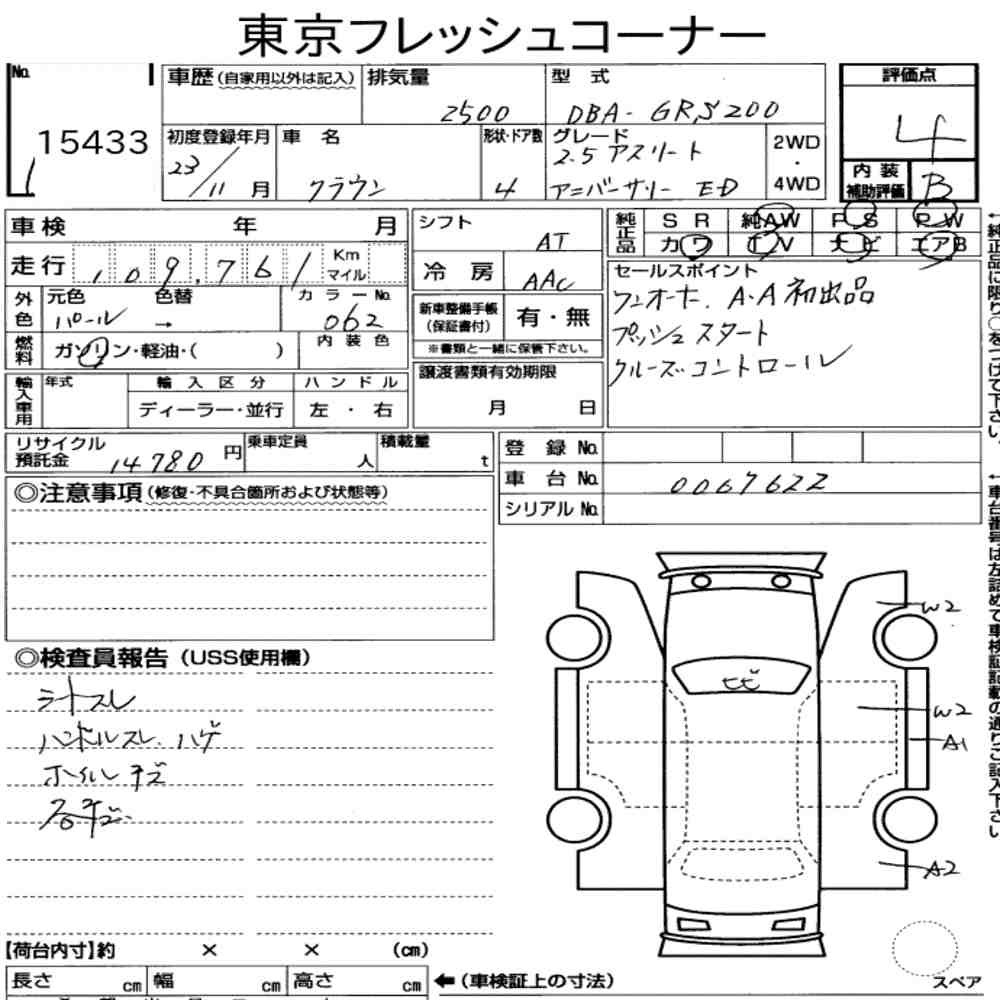 東京フレッシュコーナー
No. 15433
車歴（自家用以外は記入）
排気量 2500
型式 DBA-GRS200
評価点 4
初度登録年月 23/11月
車名 クラウン
形状・ドア数 4
グレード 2.5 アスリート アニバーサリー ED
2WD・4WD
内装補助評価 B
車検 年 月
走行 109,761 Km マイル
シフト AT
冷房 AAC
純正品 SR 純AW P.S P.W
カワ T.V ナビ エアB
外色 元色 パール 色替 →
カラーNo. 062
燃料 ガソリン・軽油・（ ）
内装色
新車整備手帳（保証書付） 有・無
※書類と一緒に保管下さい。
セールスポイント
ワンオーナー. A・A初出品
プッシュスタート
クルーズコントロール
輸入車用 年式
輸入区分 ディーラー・並行
ハンドル 左・右
譲渡書類有効期限
月 日
リサイクル預託金 14780円
乗車定員 人
積載量 t
登録No.
車台No. 0067622
シリアルNo.
◎注意事項（修復・不具合箇所および状態等）
◎検査員報告（USS使用欄）
シートスレ
ハンドルスレ. ハゲ
ホイルキズ
各キズ
ヒビ
W2
W2
A1
A2
スペア
【荷台内寸】約 × × （cm）
長さ cm 幅 cm 高さ cm
←（車検証上の寸法）
←純正品に限り○をつけて下さい。
←車台番号は左詰めで車検証記載の通りご記入下さい